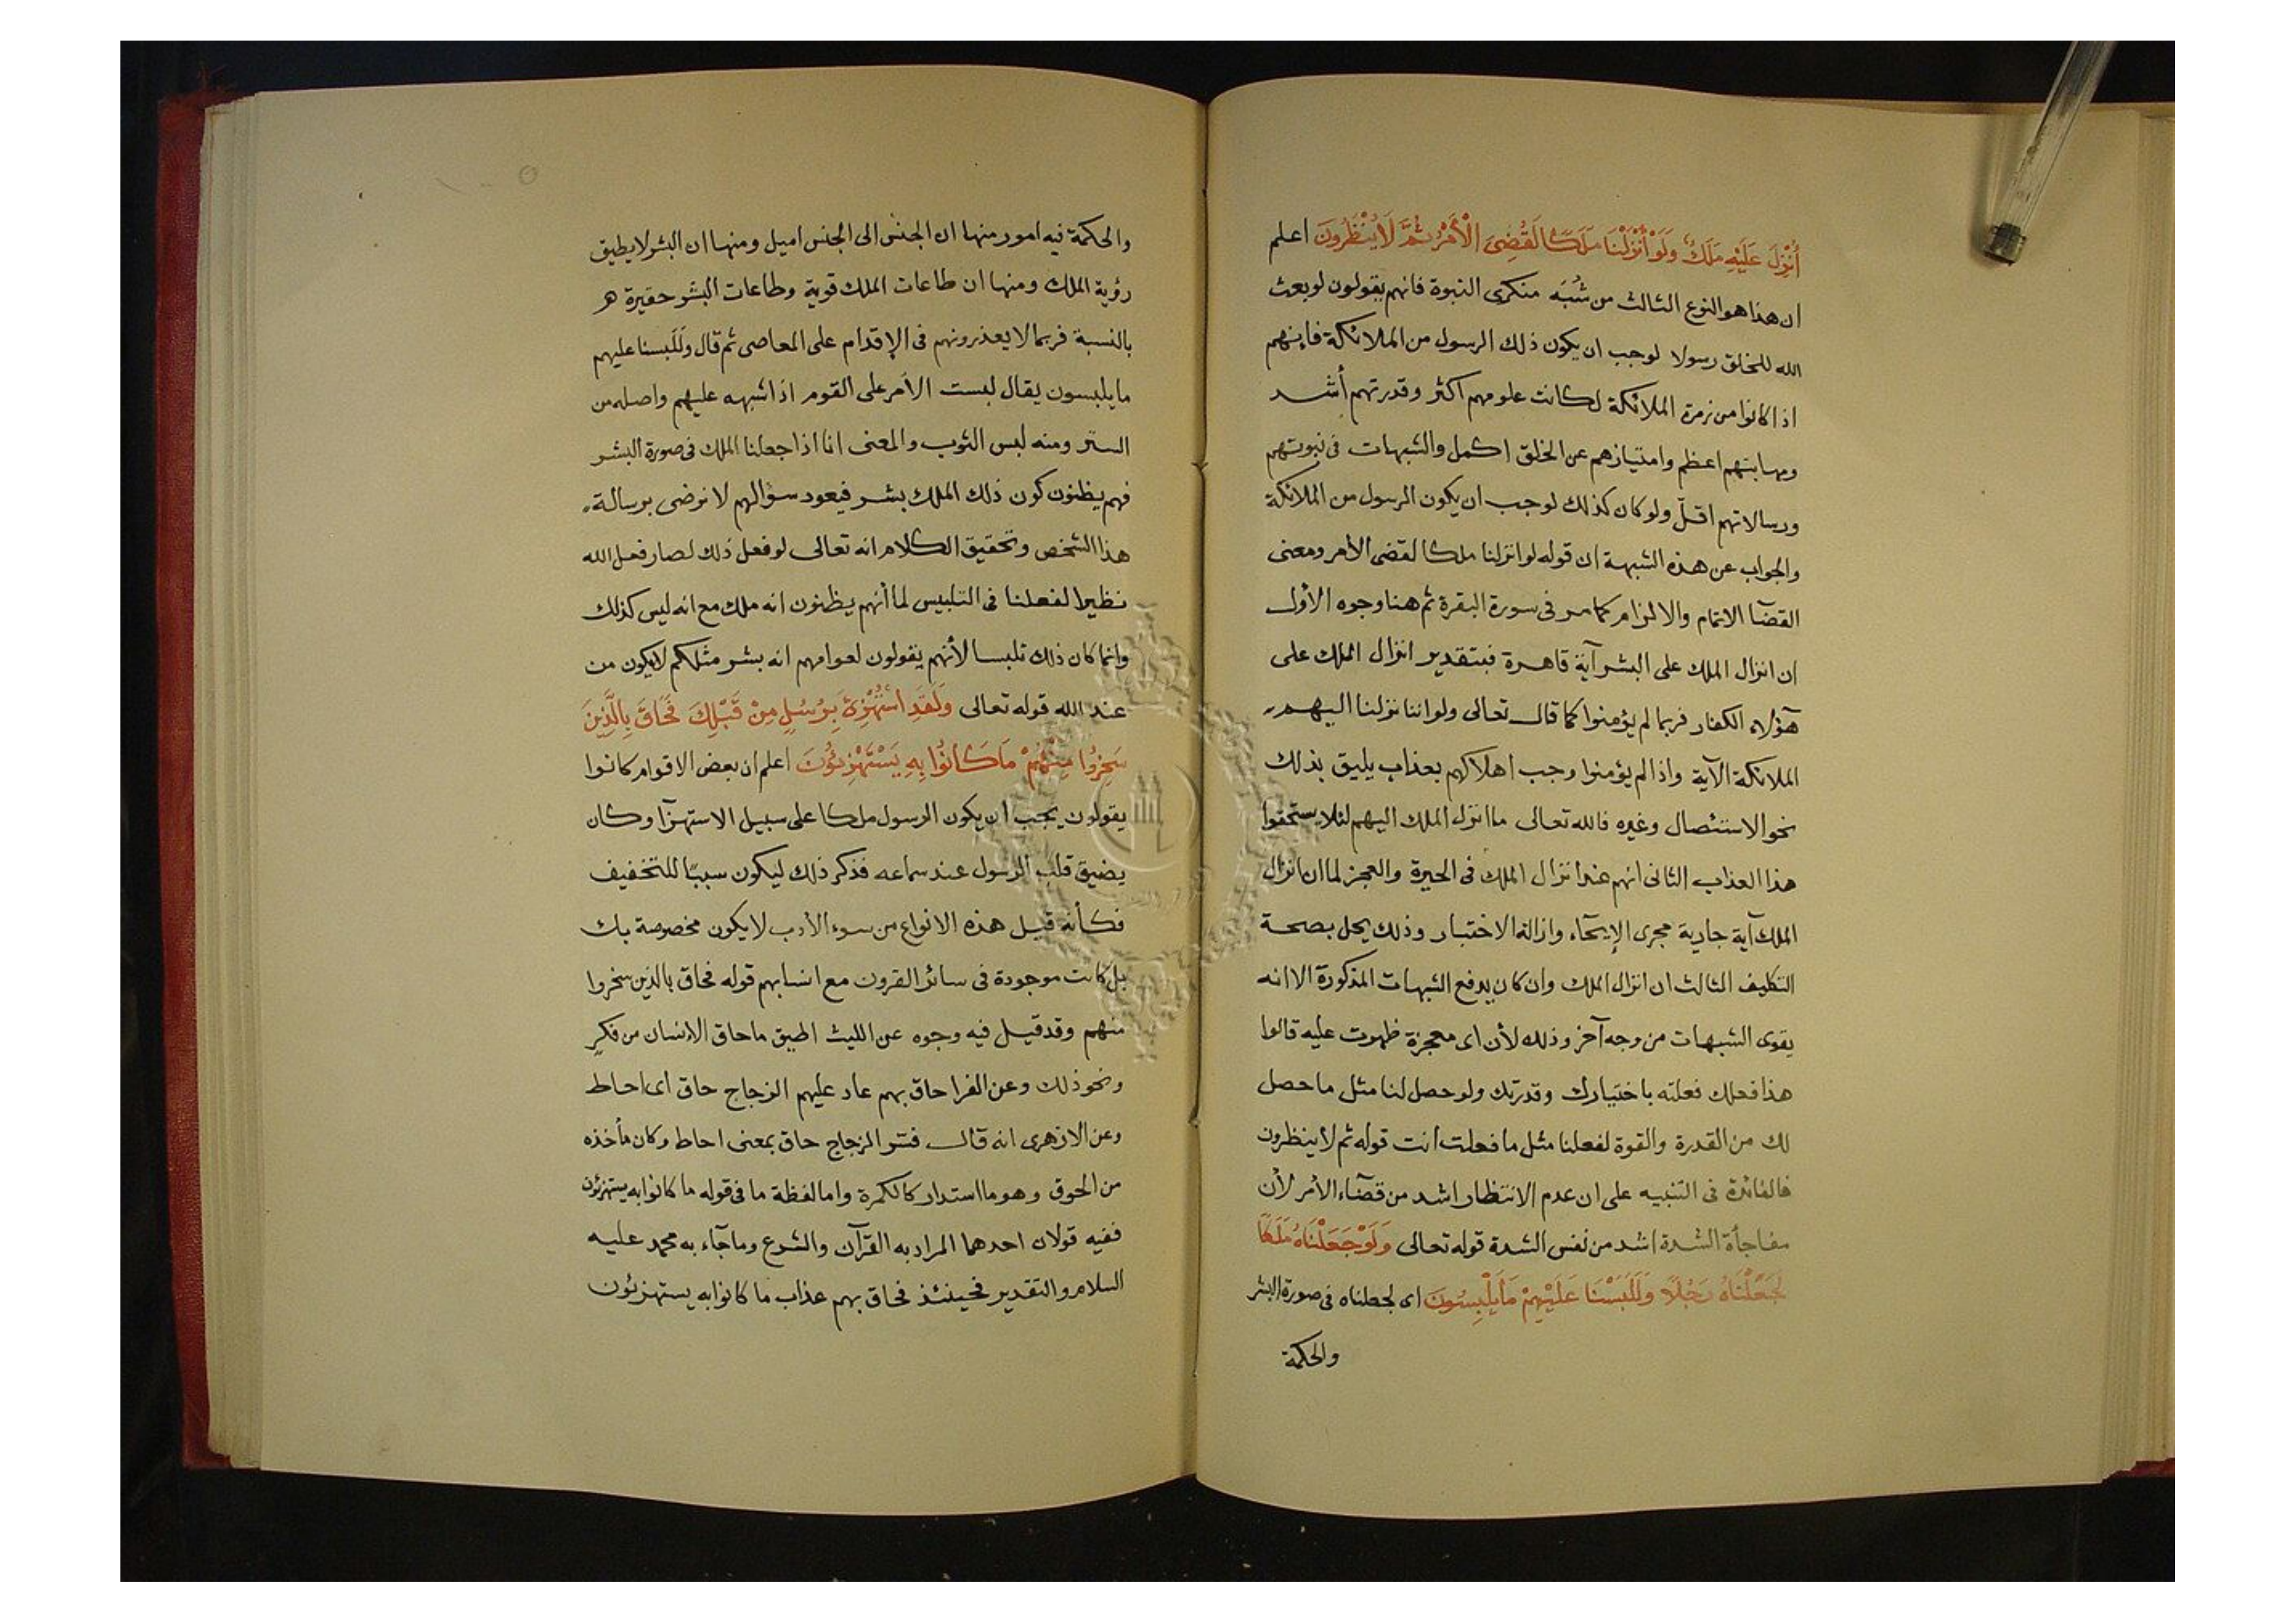 أُنْزِلَ عَلَيْهِ مَلَكٌ وَلَوْ أَنْزَلْنَا مَلَكًا لَقُضِيَ الْأَمْرُ ثُمَّ لَا يُنْظَرُونَ اعلم
ان هذا هو النوع الثالث من شُبَه منكرى النبوة فانهم يقولون لو بعث
الله للخلق رسولا لوجب ان يكون ذلك الرسول من الملائكة فإنهم
اذا كانوا من زمرة الملائكة لكانت علومهم اكثر وقدرتهم أشد
ومهابتهم اعظم وامتيازهم عن الخلق اكمل والشبهات فى نبوتهم
ورسالاتهم اقلّ ولو كان كذلك لوجب ان يكون الرسول من الملائكة
والجواب عن هذه الشبهة ان قوله لو انزلنا ملكا لقضى الأمر ومعنى
القضآ الاتمام والالزام كما مر فى سورة البقرة ثم هنا وجوه الأول
ان انزال الملك على البشر آية قاهرة فبتقدير انزال الملك على
هؤلاء الكفار فربما لم يؤمنوا كما قال تعالى ولو اننا نزلنا اليهم
الملائكة الآية واذا لم يؤمنوا وجب اهلاكهم بعذاب يليق بذلك
نحو الاستئصال وغيره فالله تعالى ما انزل الملك اليهم لئلا يستحقوا
هذا العذاب الثانى انهم عند انزال الملك فى الحيرة والعجز لما ان انزال
الملك آية جارية مجرى الإيحآء وازالة الاختبار وذلك يخل بصحة
التكليف الثالث ان انزال الملك وان كان يدفع الشبهات المذكورة الا انه
يقوى الشبهات من وجه آخر وذلك لأن اى معجزة ظهرت عليه قالوا
هذا فعلك فعلته باختيارك وقدرتك ولو حصل لنا مثل ما حصل
لك من القدرة والقوة لفعلنا مثل ما فعلت أنت قوله ثم لا ينظرون
فالفائدة فى التنبيه على ان عدم الانتظار اشد من قضآء الأمر لأن
مفاجأة الشدة اشد من نفس الشدة قوله تعالى وَلَوْ جَعَلْنَاهُ مَلَكًا
لَجَعَلْنَاهُ رَجُلًا وَلَلَبَسْنَا عَلَيْهِمْ مَا يَلْبِسُونَ اى لجعلناه فى صورة البشر
والحكمة
والحكمة فيه امور منها ان الجنس الى الجنس اميل ومنها ان البشر لا يطيق
رؤية الملك ومنها ان طاعات الملك قوية وطاعات البشر حقيرة هر
بالنسبة فربما لا يعذرونهم فى الإقدام على المعاصى ثم قال وَلَلَبسنا عليهم
ما يلبسون يقال لبست الأمر على القوم اذا شبهه عليهم واصله من
الستر ومنه لبس الثوب والمعنى انا اذا جعلنا الملك فى صورة البشر
فهم يظنون كون ذلك الملك بشر فيعود سؤالهم لا نرضى برسالة
هذا الشخص وتحقيق الكلام انه تعالى لو فعل ذلك لصار فعل الله
نظيرا لفعلنا فى التلبيس لما أنهم يظنون انه ملك مع انه ليس كذلك
وانما كان ذلك تلبسا لأنهم يقولون لعوامهم انه بشر مثلكم لا يكون من
عند الله قوله تعالى وَلَقَدِ اسْتُهْزِئَ بِرُسُلٍ مِنْ قَبْلِكَ فَحَاقَ بِالَّذِينَ
سَخِرُوا مِنْهُمْ مَا كَانُوا بِهِ يَسْتَهْزِئُونَ اعلم ان بعض الاقوام كانوا
يقولون يجب ان يكون الرسول ملكا على سبيل الاستهزآ وكان
يضيق قلب الرسول عند سماعه فذكر ذلك ليكون سببًا للتخفيف
فكأنه قيل هذه الانواع من سوء الأدب لا يكون مخصوصة بك
بل كانت موجودة فى سائر القرون مع انسابهم قوله فحاق بالذين سخروا
منهم وقد قيل فيه وجوه عن الليث الحيق ما حاق الإنسان من فكرٍ
ونحو ذلك وعن الفرا حاق بهم عاد عليهم الزجاج حاق اى احاط
وعن الازهرى انه قال فسر الزجاج حاق بمعنى احاط وكان مأخذه
من الحوق وهو ما استدار كالكمرة واما لفظة ما فى قوله ما كانوا به يستهزئون
ففيه قولان احدهما المراد به القرآن والشرع وما جآء به محمد عليه
السلام والتقدير فحينئذ فحاق بهم عذاب ما كانوا به يستهزئون